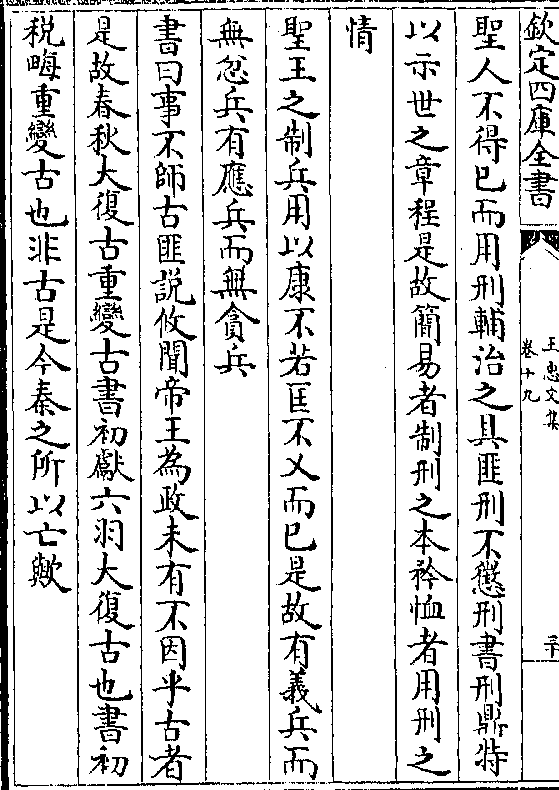 欽定四庫全書
王忠文集
卷十九
三十
聖人不得已而用刑輔治之具匪刑不懲刑書刑鼎特
以示世之章程是故簡易者制刑之本矜恤者用刑之
情
聖王之制兵用以康不若匡不乂而已是故有義兵而
無忿兵有應兵而無貪兵
書曰事不師古匪說攸聞帝王為政未有不因乎古者
是故春秋大復古重變古書初獻六羽大復古也書初
稅畮重變古也非古是今秦之所以亡歟